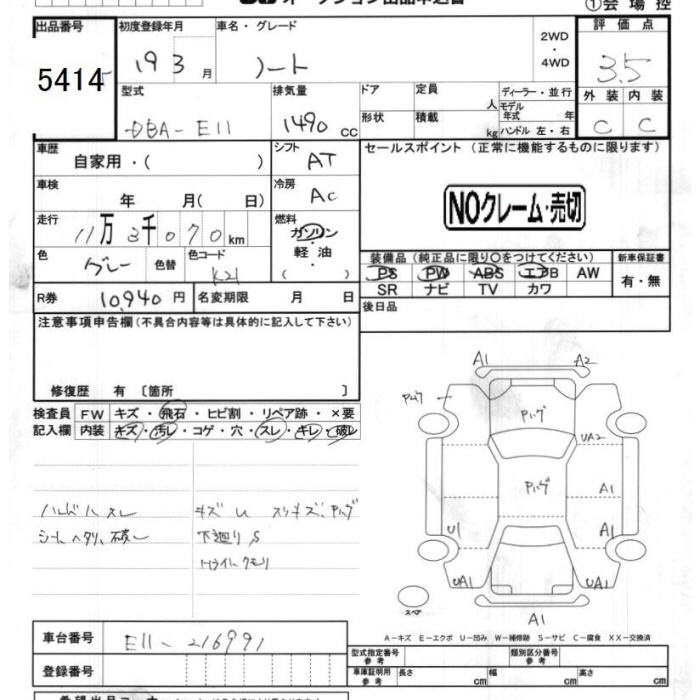 オークション出品申込書
①会場控
出品番号 初度登録年月 車名・グレード 2WD・4WD 評価点
5414 19 3月 ノート 3.5
型式 排気量 ドア 定員 人 ディーラー・並行 外装 内装
DBA-E11 1490 cc 形状 積載 kg モデル年式 年 ハンドル 左・右 C C
車歴 自家用・( ) シフト AT セールスポイント (正常に機能するものに限ります)
車検 年 月( 日) 冷房 AC NOクレーム・売切
走行 11万3千070km 燃料 ガソリン・軽油・( )
色 グレー 色替 色コード K21 装備品 (純正品に限り○をつけてください) 新車保証書
PS PW ABS エアB AW 有・無
SR ナビ TV カワ
R券 10,940円 名変期限 月 日 後日品
注意事項申告欄 (不具合内容等は具体的に記入して下さい)
修復歴 有 〔箇所 〕
検査員 FW キズ・飛石・ヒビ割・リペア跡・×要
記入欄 内装 キズ・汚レ・コゲ・穴・スレ・キレ・破レ
ハンドル スレ キズ U スリキズ、Pハゲ
シートヘタリ、破レ 下廻り S
Hライトクモリ
A1 A2
Pハゲ Pハゲ
UA2
Pハゲ A1
U1 A1
UA1 UA1
スペア A1
A-キズ E-エクボ U-凹み W-補修跡 S-サビ C-腐食 XX-交換済
車台番号 E11-216991
型式指定番号 参考 類別区分番号 参考
登録番号 車庫証明用 参考 長さ cm 幅 cm 高さ cm
希望出品コーナー